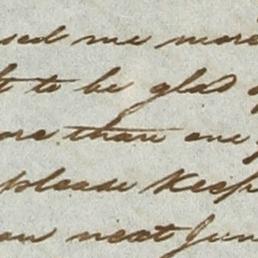 sed me more
t to be glad
ore than one
please Keep
ou next Jun